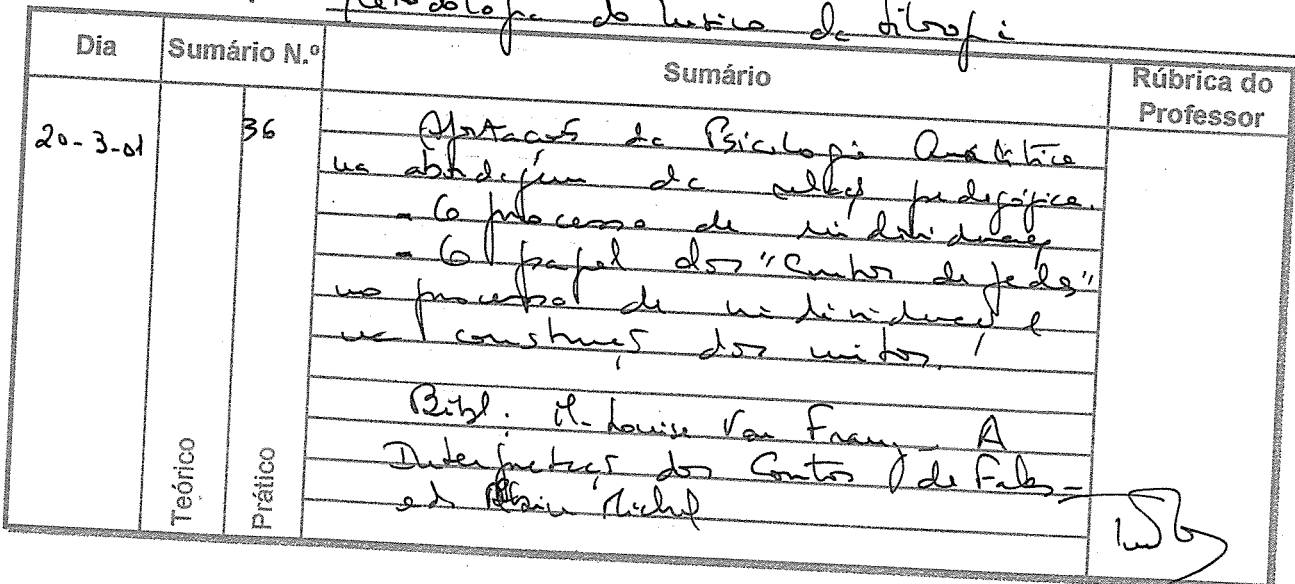 Metodologia do Ensino da Filosofia
Dia
Sumário N.º
Sumário
Rúbrica do Professor
20-3-01
36
Teórico
Prático
da Psicologia Analítica
na abordagem da relação pedagógica.
- O processo de individuação
- O papel dos "Contos de fadas"
no processo de individuação e
na construção dos mitos.
Bibl. M-Louise Von Franz, A
Interpretação dos Contos de Fadas -
ed.